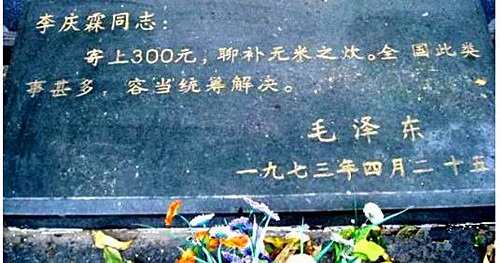 李庆霖同志：
寄上300元，聊补无米之炊。全国此类
事甚多，容当统筹解决。
毛泽东
一九七三年四月二十五